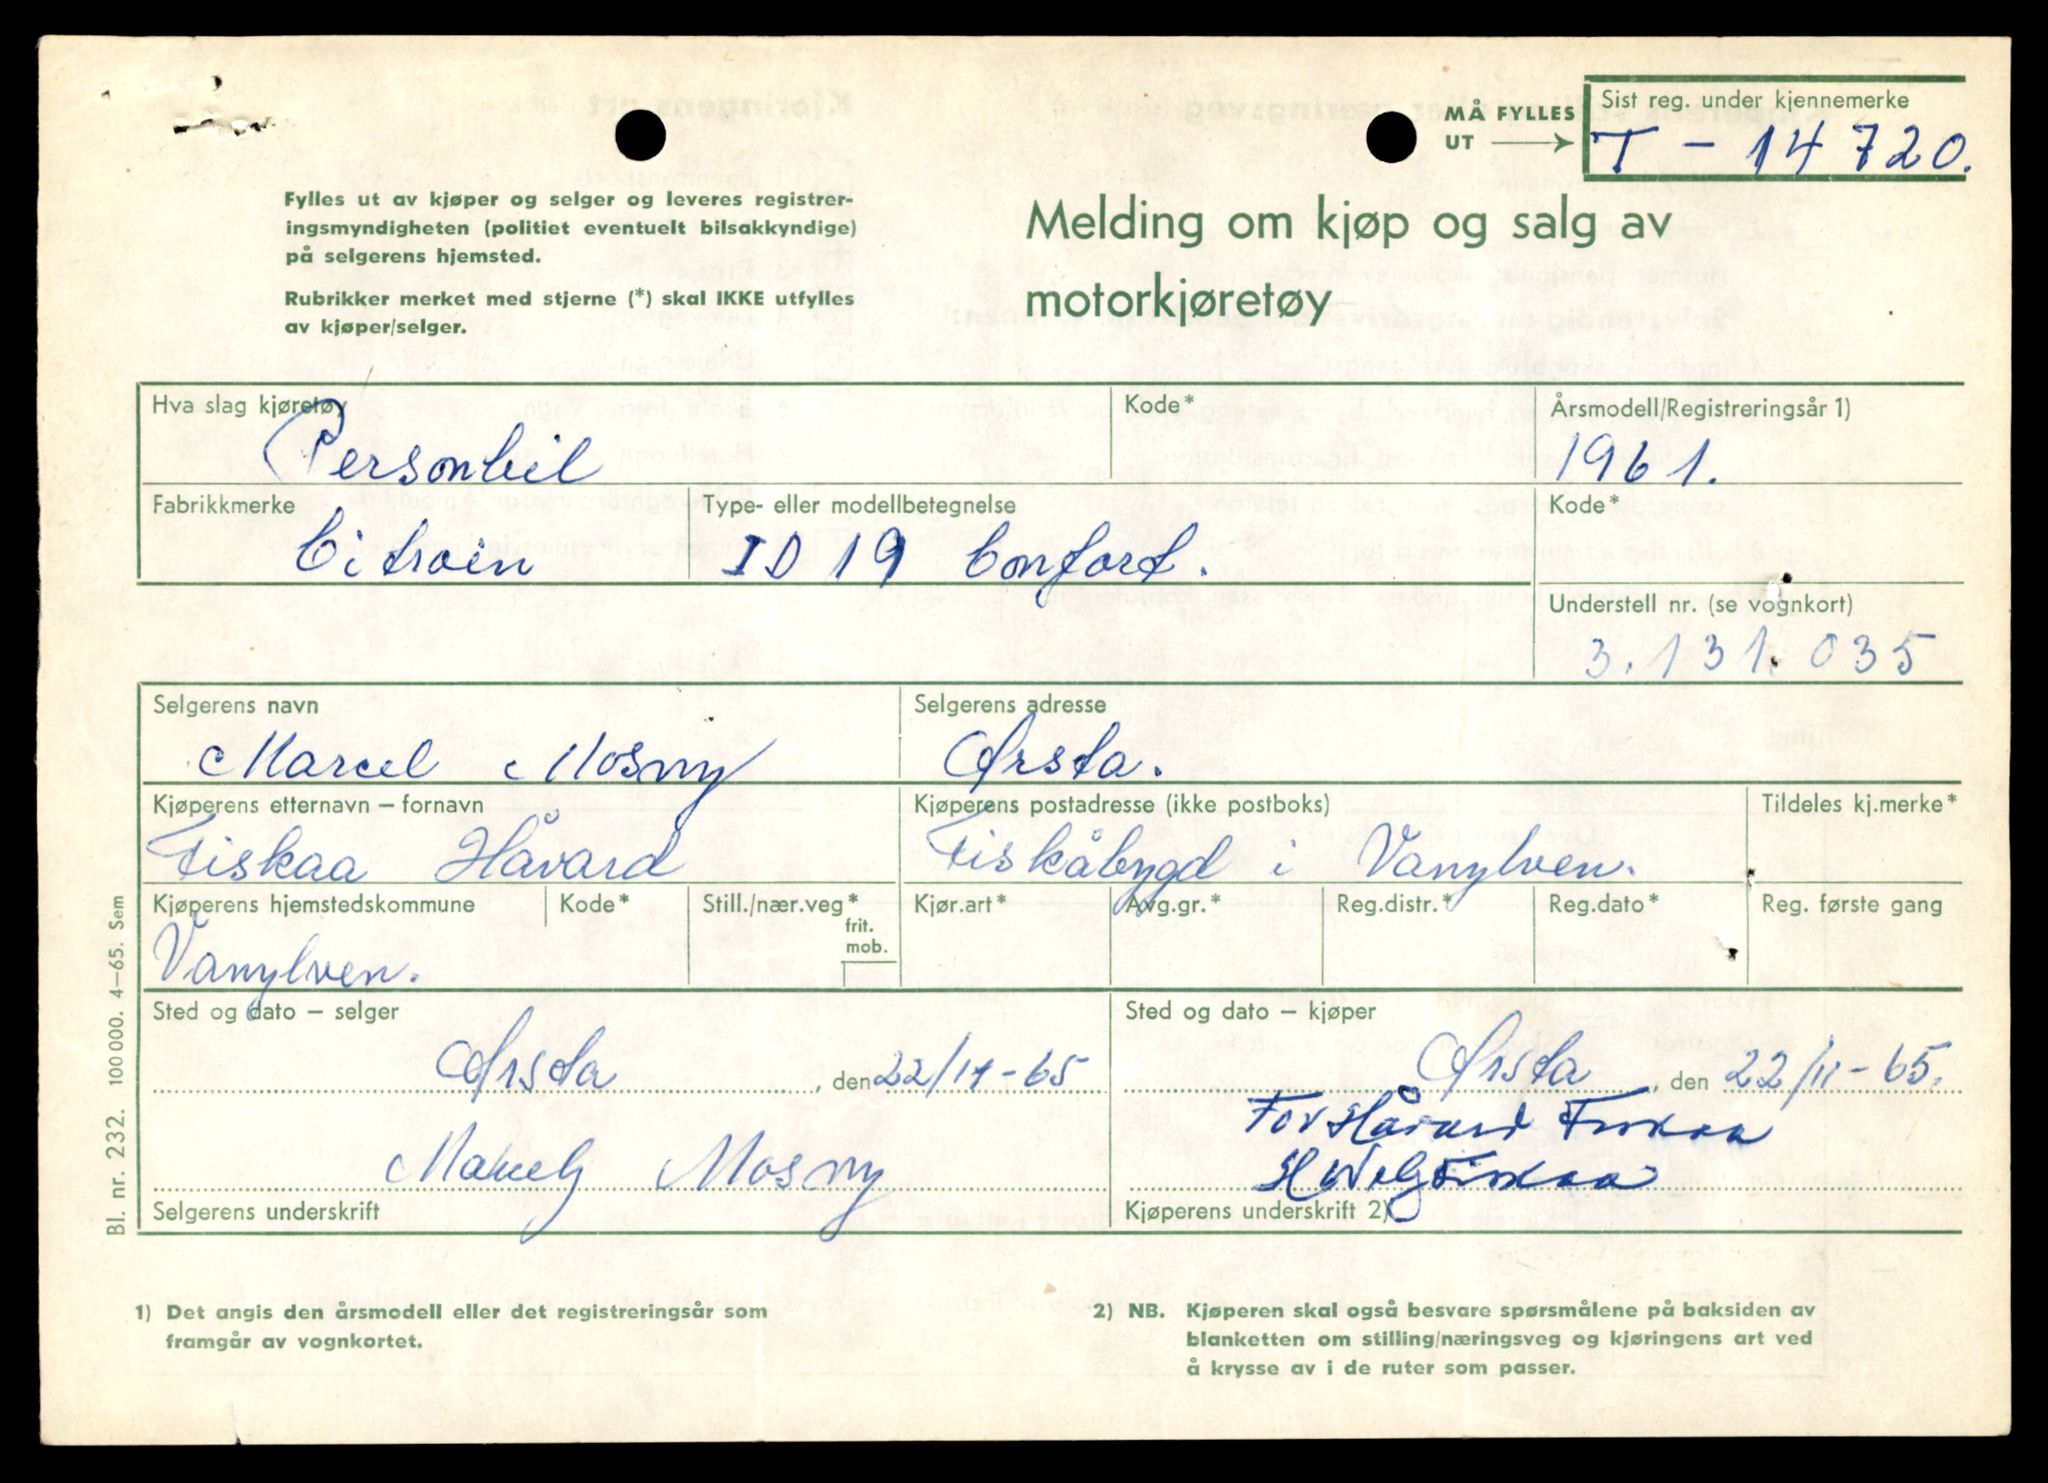 MÅ FYLLES UT
Sist reg. under kjennemerke
T - 14720.
Fylles ut av kjøper og selger og leveres registrer-
ingsmyndigheten (politiet eventuelt bilsakkyndige)
på selgerens hjemsted.
Rubrikker merket med stjerne (*) skal IKKE utfylles
av kjøper/selger.
Melding om kjøp og salg av
motorkjøretøy
Hva slag kjøretøy
Personbil
Kode*
Årsmodell/Registreringsår 1)
1961.
Fabrikkmerke
Citroën
Type- eller modellbetegnelse
ID 19 Confort.
Kode*
Understell nr. (se vognkort)
3.131.035
Selgerens navn
Marcel Mosny
Selgerens adresse
Ørsta.
Kjøperens etternavn – fornavn
Fiskaa Håvard
Kjøperens postadresse (ikke postboks)
Fiskåbygd i Vanylven.
Tildeles kj.merke*
Kjøperens hjemstedskommune
Vanylven.
Kode*
Still./nær.veg*
frit.
mob.
Kjør.art*
Avg.gr.*
Reg.distr.*
Reg.dato*
Reg. første gang
Sted og dato – selger
Ørsta, den 22/11-65
Mosny
Selgerens underskrift
Sted og dato – kjøper
Ørsta, den 22/11-65.
For Håvard Fiskaa
Fiskaa
Kjøperens underskrift 2)
Bl. nr. 232. 100 000. 4–65. Sem
1) Det angis den årsmodell eller det registreringsår som
framgår av vognkortet.
2) NB. Kjøperen skal også besvare spørsmålene på baksiden av
blanketten om stilling/næringsveg og kjøringens art ved
å krysse av i de ruter som passer.